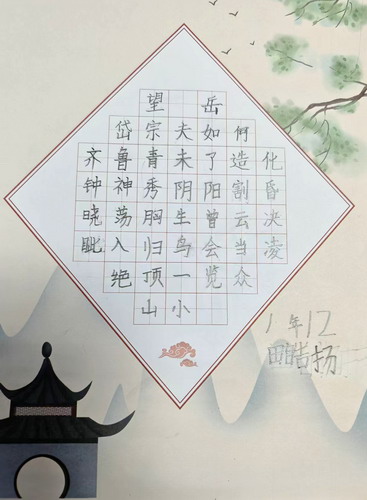 望岳
岱宗夫如何
齐鲁青未了造化
钟神秀阴阳割昏
晓荡胸生曾云决
眦入归鸟会当凌
绝顶一览众
山小
1年12
田皓扬